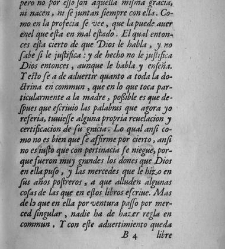 pero no por esso son aquella misma gracia,
ni nacen, ni se juntan siempre con ella. Co-
mo en la profecia se vee, que la puede auer
en el que esta en mal estado. El qual enton-
ces esta cierto de que Dios le habla, y no
sabe si le justifica: y de hecho no le justifica
Dios entonces, aunque le habla y enseña.
Y esto se a de aduertir quanto a toda la do-
ctrina en commun, que en lo que toca par-
ticularmente a la madre, possible es que des-
pues que escriuio las palabras que agora yo
referia, tuuiesse alguna propria reuelacion y
certificacion de su gracia. Lo qual ansi co-
mo no es bien que se affirme por cierto, ansi
no es justo que con pertinacia se niegue, por-
que fueron muy grandes los dones que Dios
en ella puso, y las mercedes que le hizo en
sus años postreros, a que aluden algunas
cosas de las que en estos libros escriue. Mas
de lo que en ella por ventura passo por mer-
ced singular, nadie ha de hazer regla en
commun. Y con este aduertimiento queda
B 4 libre